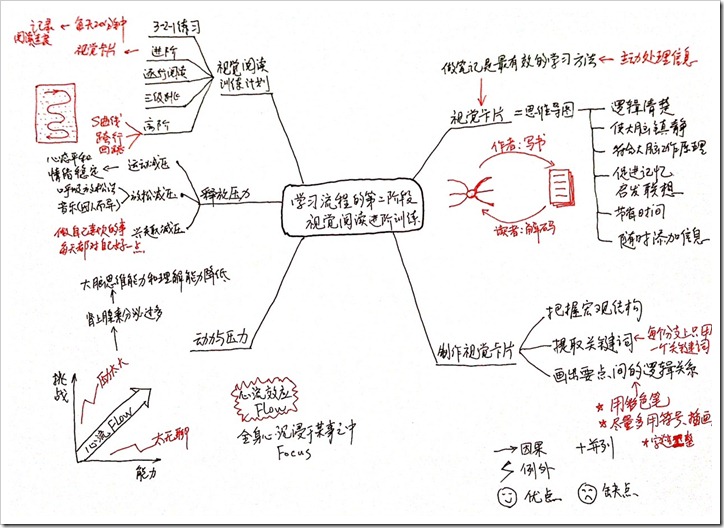 学习流程的第二阶段
视觉阅读进阶训练
做笔记是最有效的学习方法
主动处理信息
视觉卡片
=思维导图
逻辑清楚
使大脑镇静
符合大脑动作原理
促进记忆
启发联想
节省时间
随时添加信息
作者:写书
读者:解码
制作视觉卡片
把握宏观结构
提取关键词
每个分支上只用
一个关键词
画出要点间的逻辑关系
*用彩色笔
*尽量多用符号、插画
因果
+并列
例外
优点
缺点
视觉阅读
训练计划
3-2-1练习
每天20分钟
记录
进阶
视觉卡片
逐行阅读
高阶
S曲线
跨行
回跳
释放压力
运动减压
心态平和
情绪稳定
放松减压
音乐(因人而异)
兴趣减压
做自己喜欢的事
每天都对自己好一点
动力与压力
大脑思维能力和理解能力降低
肾上腺素分泌过多
挑战
能力
心流 Flow
压力太大
太无聊
心流效应
Flow
全身心沉浸于某事之中
Focus